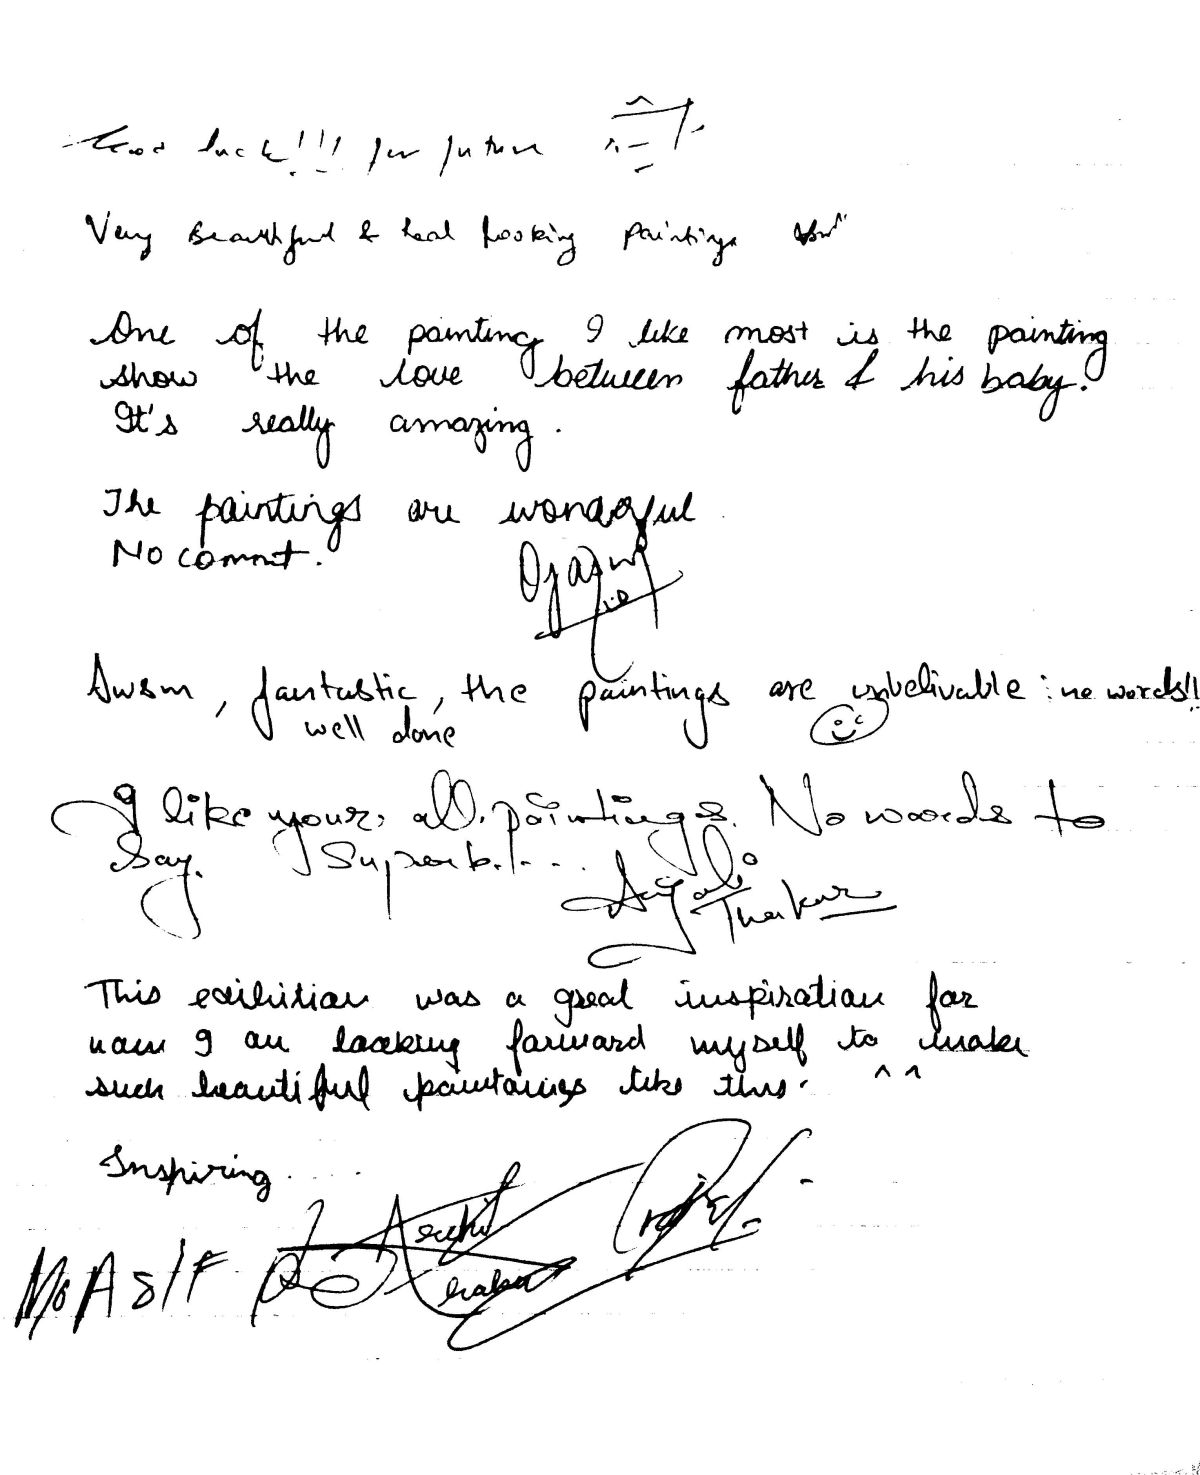 Good luck!!! for future
Very Beautiful & Real Looking paintings
One of the painting I like most is the painting
show the love between father & his baby.
It's really amazing.
The paintings are wonderful
No commt.
Awsm, fantastic, the paintings are unbelivable : no words!!
well done
I like your all paintings. No words to
say. Superb!...
Anjali
Thakur
This exihition was a great inspiration for
now I am looking forward myself to make
such beautiful paintaings like this. ^ ^
Inspiring....
Mo ASIF